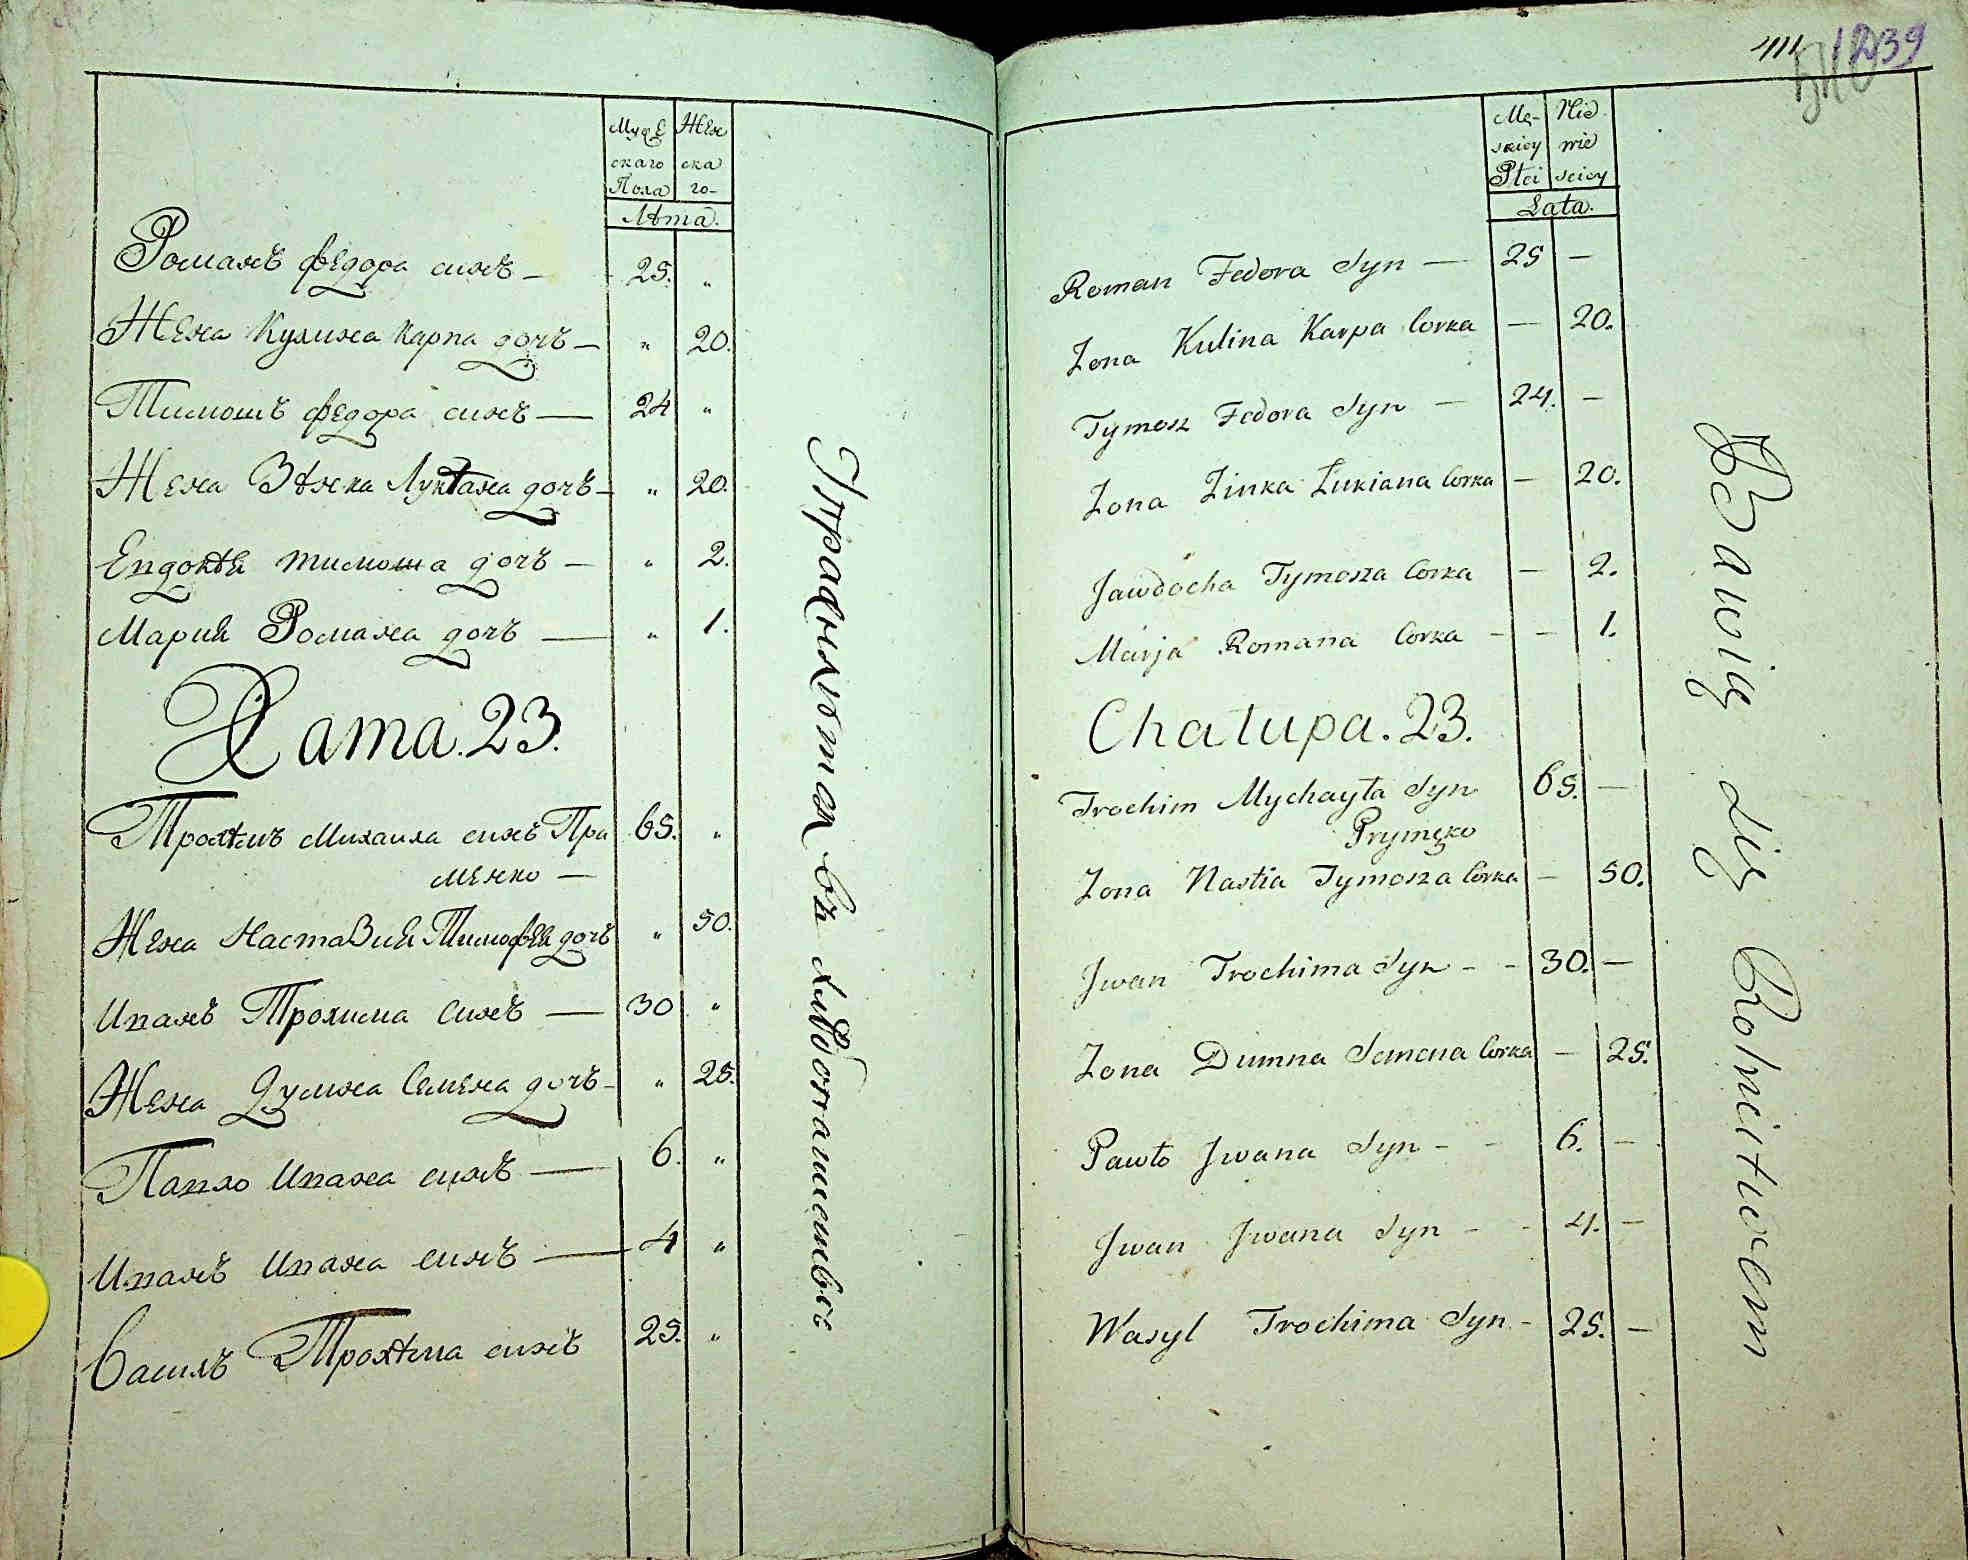 Мужескаго Пола
Женскаго
Лѣта.
Романъ Федора синъ — 25. „
Жена Кулина Карпа дочъ — „ 20.
Тимошъ Федора синъ — 24 „
Жена Зѣнка Луктана дочъ — „ 20.
Евдокѣя Тимоша дочъ — „ 2.
Мария Романа дочъ — „ 1.
Хата. 23.
Трохѣмъ Михаила синъ При 65. „
менко —
Жена Настазия Тимофея дочъ „ 50.
Иванъ Трохима синъ — 30 „
Жена Думна Семена дочъ — „ 25.
Павло Ивана синъ — 6. „
Иванъ Ивана синъ — 4 „
Василъ Трохѣма синъ 25. „
Упражняются въ хлѣбопашествѣ
411 1239
Męskiey Płci
Niewiesciey
Lata.
Roman Fedora Syn — 25 —
Zona Kulina Karpa Corka — 20.
Tymosz Fedora Syn — 24. —
Zona Zinka Łukiana Corka — 20.
Jawdocha Tymosza Corka — 2.
Marja Romana Corka - — 1.
Chałupa. 23.
Trochim Mychayła Syn 65. —
Prymęko
Zona Nastia Tymosza Corka — 50.
Jwan Trochima Syn - - 30. —
Zona Dumna Semena Corka — 25.
Pawło Jwana Syn - - 6. —
Jwan Jwana Syn - - 4. —
Wasyl Trochima Syn - 25. —
Bawią się Rolnictwem